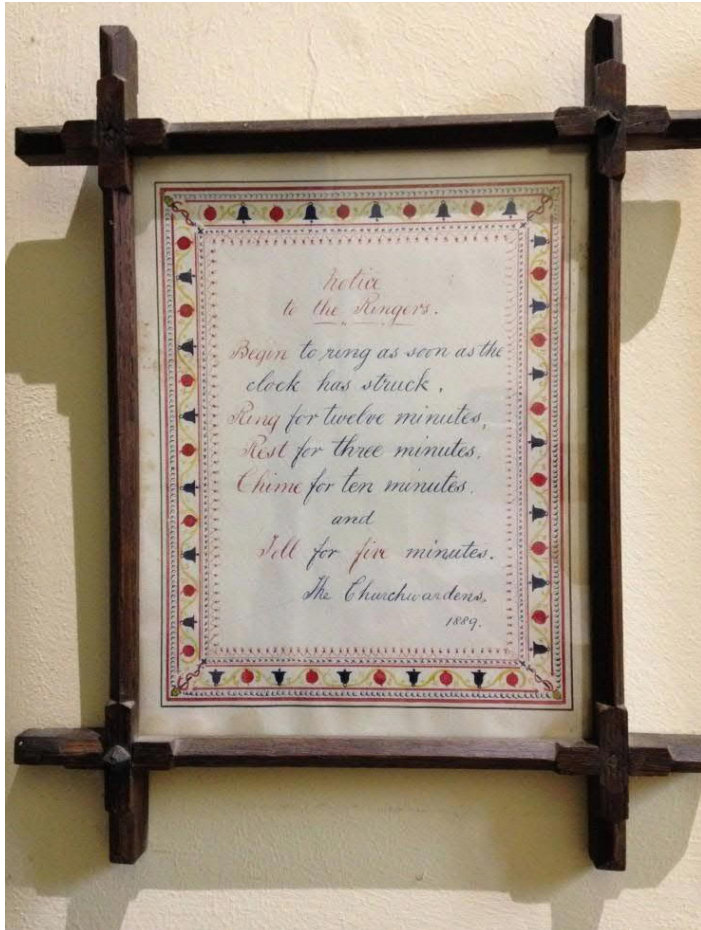 Notice
to the Ringers.
Begin to ring as soon as the
clock has struck.
Ring for twelve minutes,
Rest for three minutes.
Chime for ten minutes.
and
Toll for five minutes.
The Churchwardens.
1889.